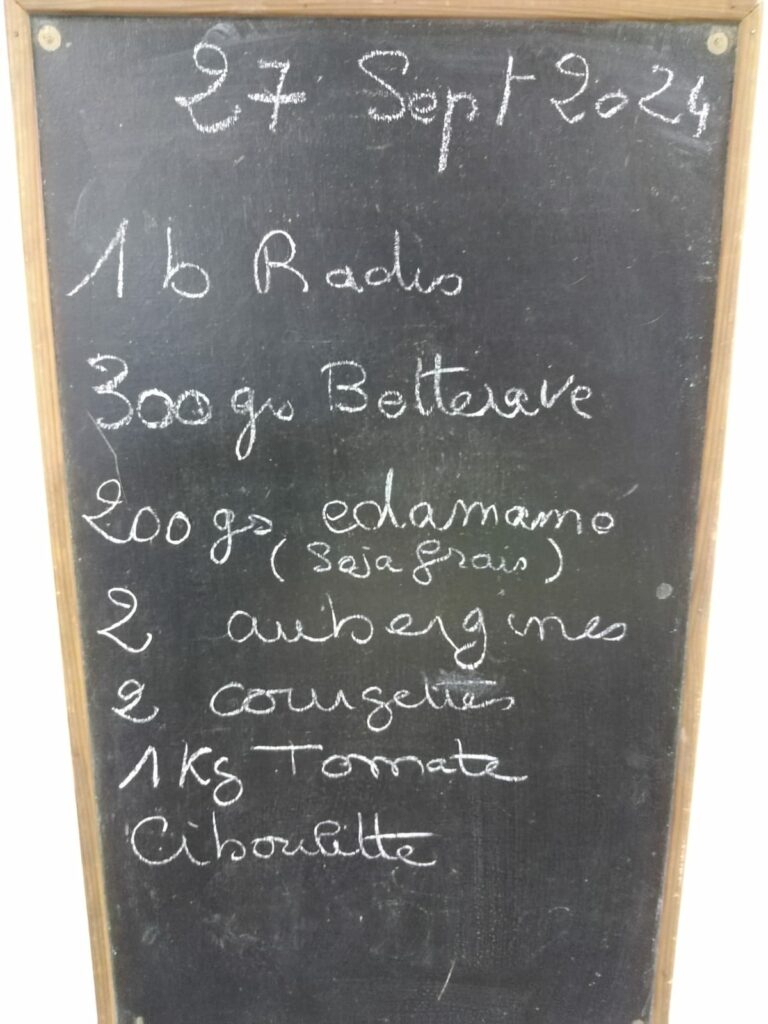 27 Sept 2024
1 b Radis
300 gs Betterave
200 gs edamame
(Soja frais)
2 aubergines
2 courgettes
1 Kg Tomate
Ciboulette